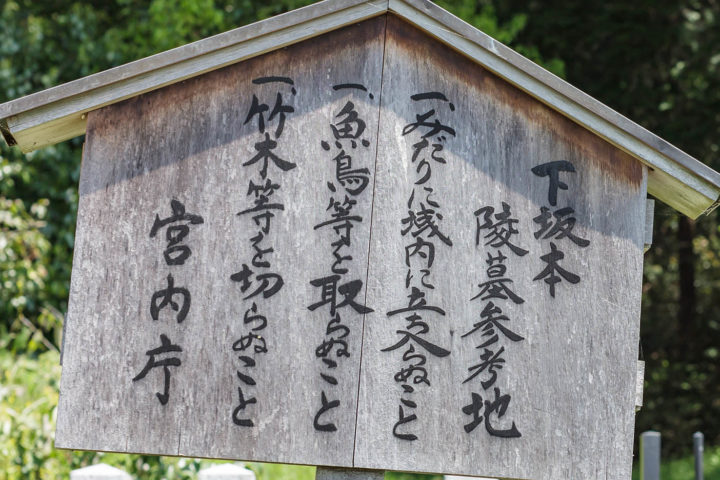 下坂本
陵墓参考地
一、みだりに域内に立ち入らぬこと
一、魚鳥等を取らぬこと
一、竹木等を切らぬこと
宮内庁